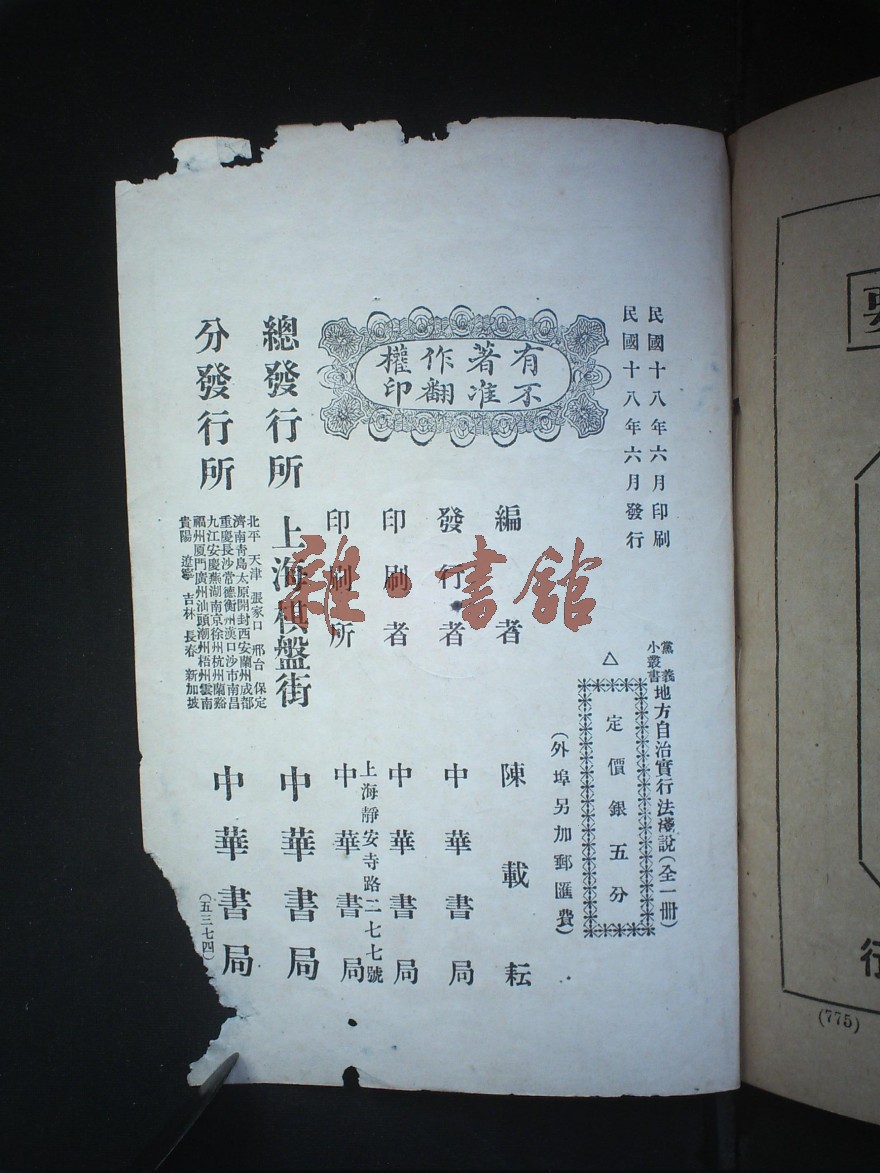 民國十八年六月印刷
民國十八年六月發行
有著作權
不准翻印
黨義
小叢書
地方自治實行法淺說(全一冊)
△定價銀五分
(外埠另加郵匯費)
編者 陳載耘
發行者 中華書局
印刷者 中華書局
上海靜安寺路二七七號
印刷所 中華書局
總發行所 上海棋盤街 中華書局
分發行所
北平 天津 張家口 邢台 保定
濟南青島太原開封西安蘭州成都
重慶長沙常德衡州漢口沙市南昌
九江安慶蕪湖南京徐州杭州蘭谿
福州厦門廣州汕頭潮州梧州雲南
貴陽 遼寧 吉林 長春 新加坡
中華書局
(五三七四)
雜·書館
行
(775)